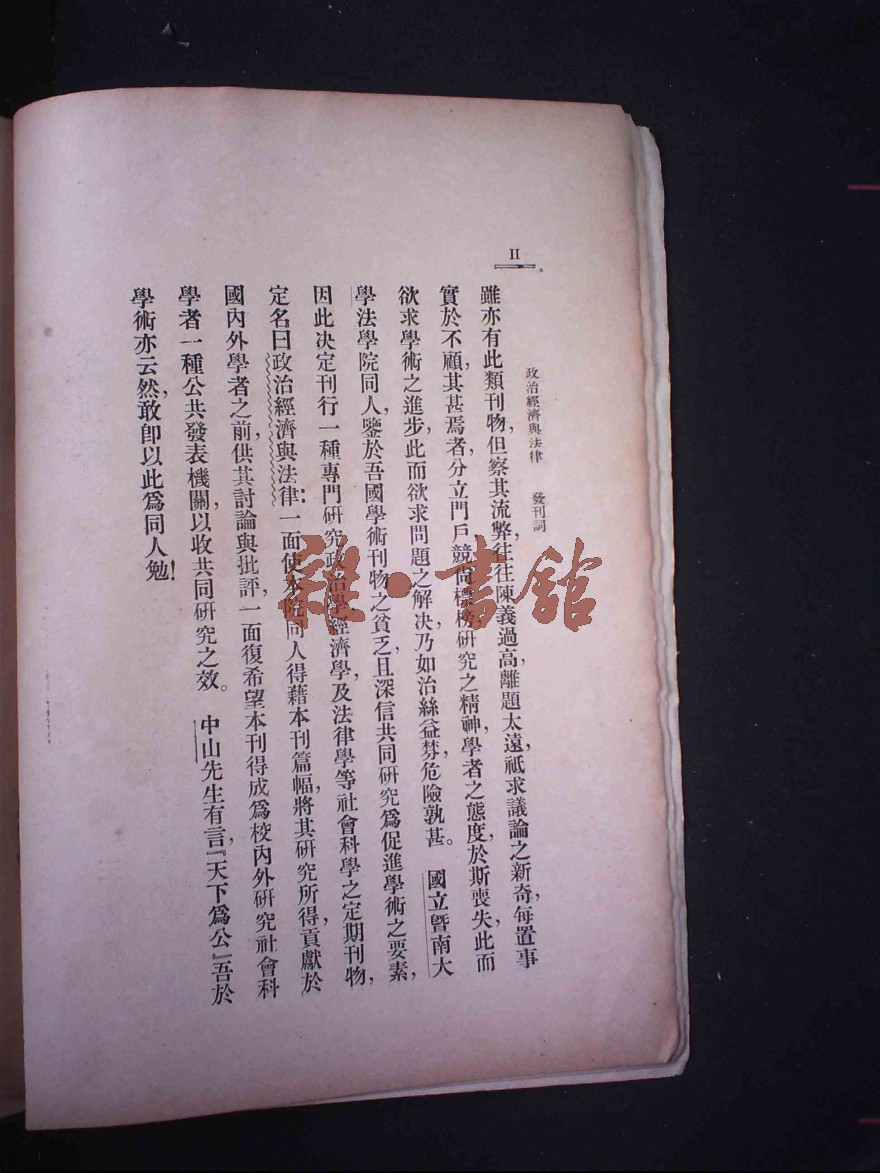 II
政治經濟與法律　發刊詞
雖亦有此類刊物,但察其流弊,往往陳義過高,離題太遠,祇求議論之新奇,每置事
實於不顧,其甚焉者,分立門戶,競尚標榜,研究之精神,學者之態度,於斯喪失,此而
欲求學術之進步,此而欲求問題之解决,乃如治絲益棼,危險孰甚。國立暨南大
學法學院同人,鑒於吾國學術刊物之貧乏,且深信共同研究爲促進學術之要素,
因此决定刊行一種專門研究政治學,經濟學,及法律學等社會科學之定期刊物,
定名曰政治經濟與法律:一面使本院同人得藉本刊篇幅,將其研究所得,貢獻於
國內外學者之前,供其討論與批評,一面復希望本刊得成爲校內外研究社會科
學者一種公共發表機關,以收共同研究之效。中山先生有言,『天下爲公』吾於
學術亦云然,敢卽以此爲同人勉!
雜·書館